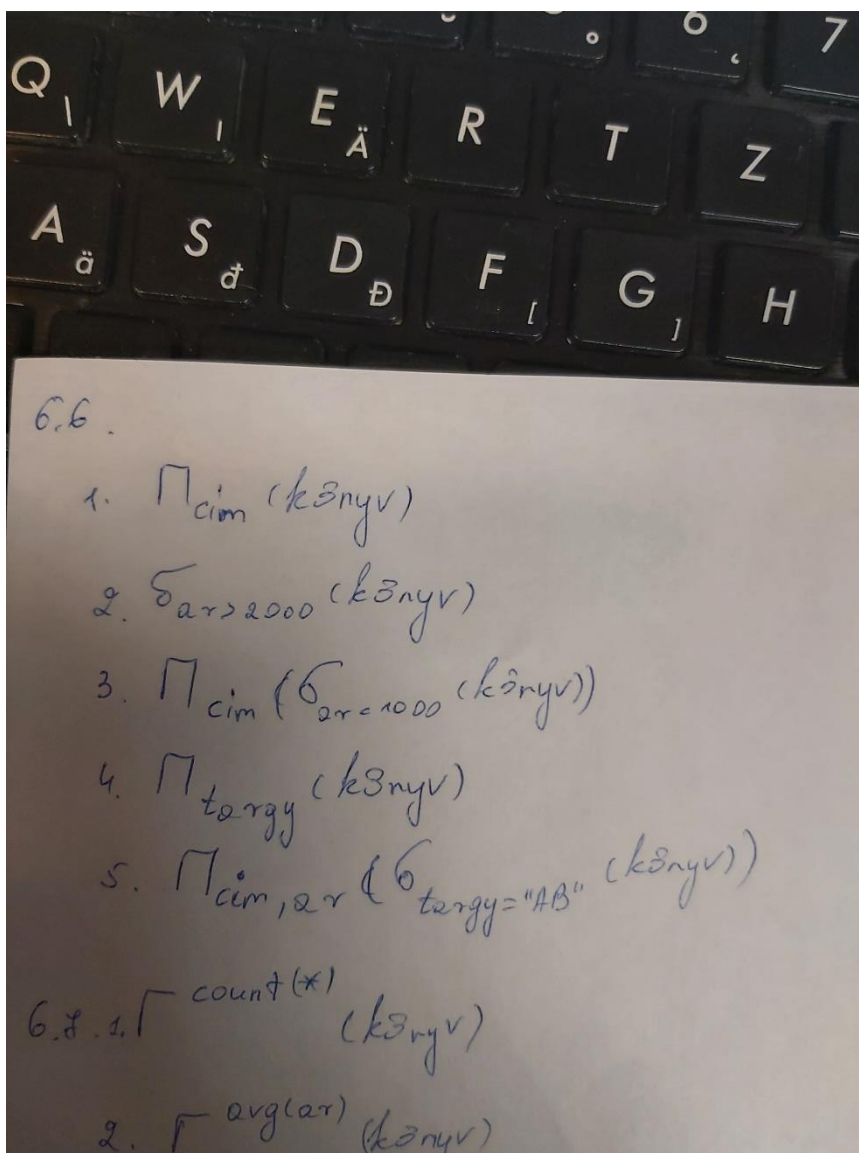 7
Q \ W | E Ä R T Z
A ä S đ D Đ F [ G ] H
6.6.
1. Π cim (könyv)
2. σ ar>2000 (könyv)
3. Π cim (σ ar=1000 (könyv))
4. Π targy (könyv)
5. Π cim, ar (σ targy="AB" (könyv))
6.8.1. Γ count(*) (könyv)
2. Γ avg(ar) (könyv)